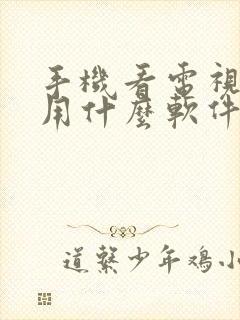 手機看電視
用什麼軟件
道繫少年鴻小